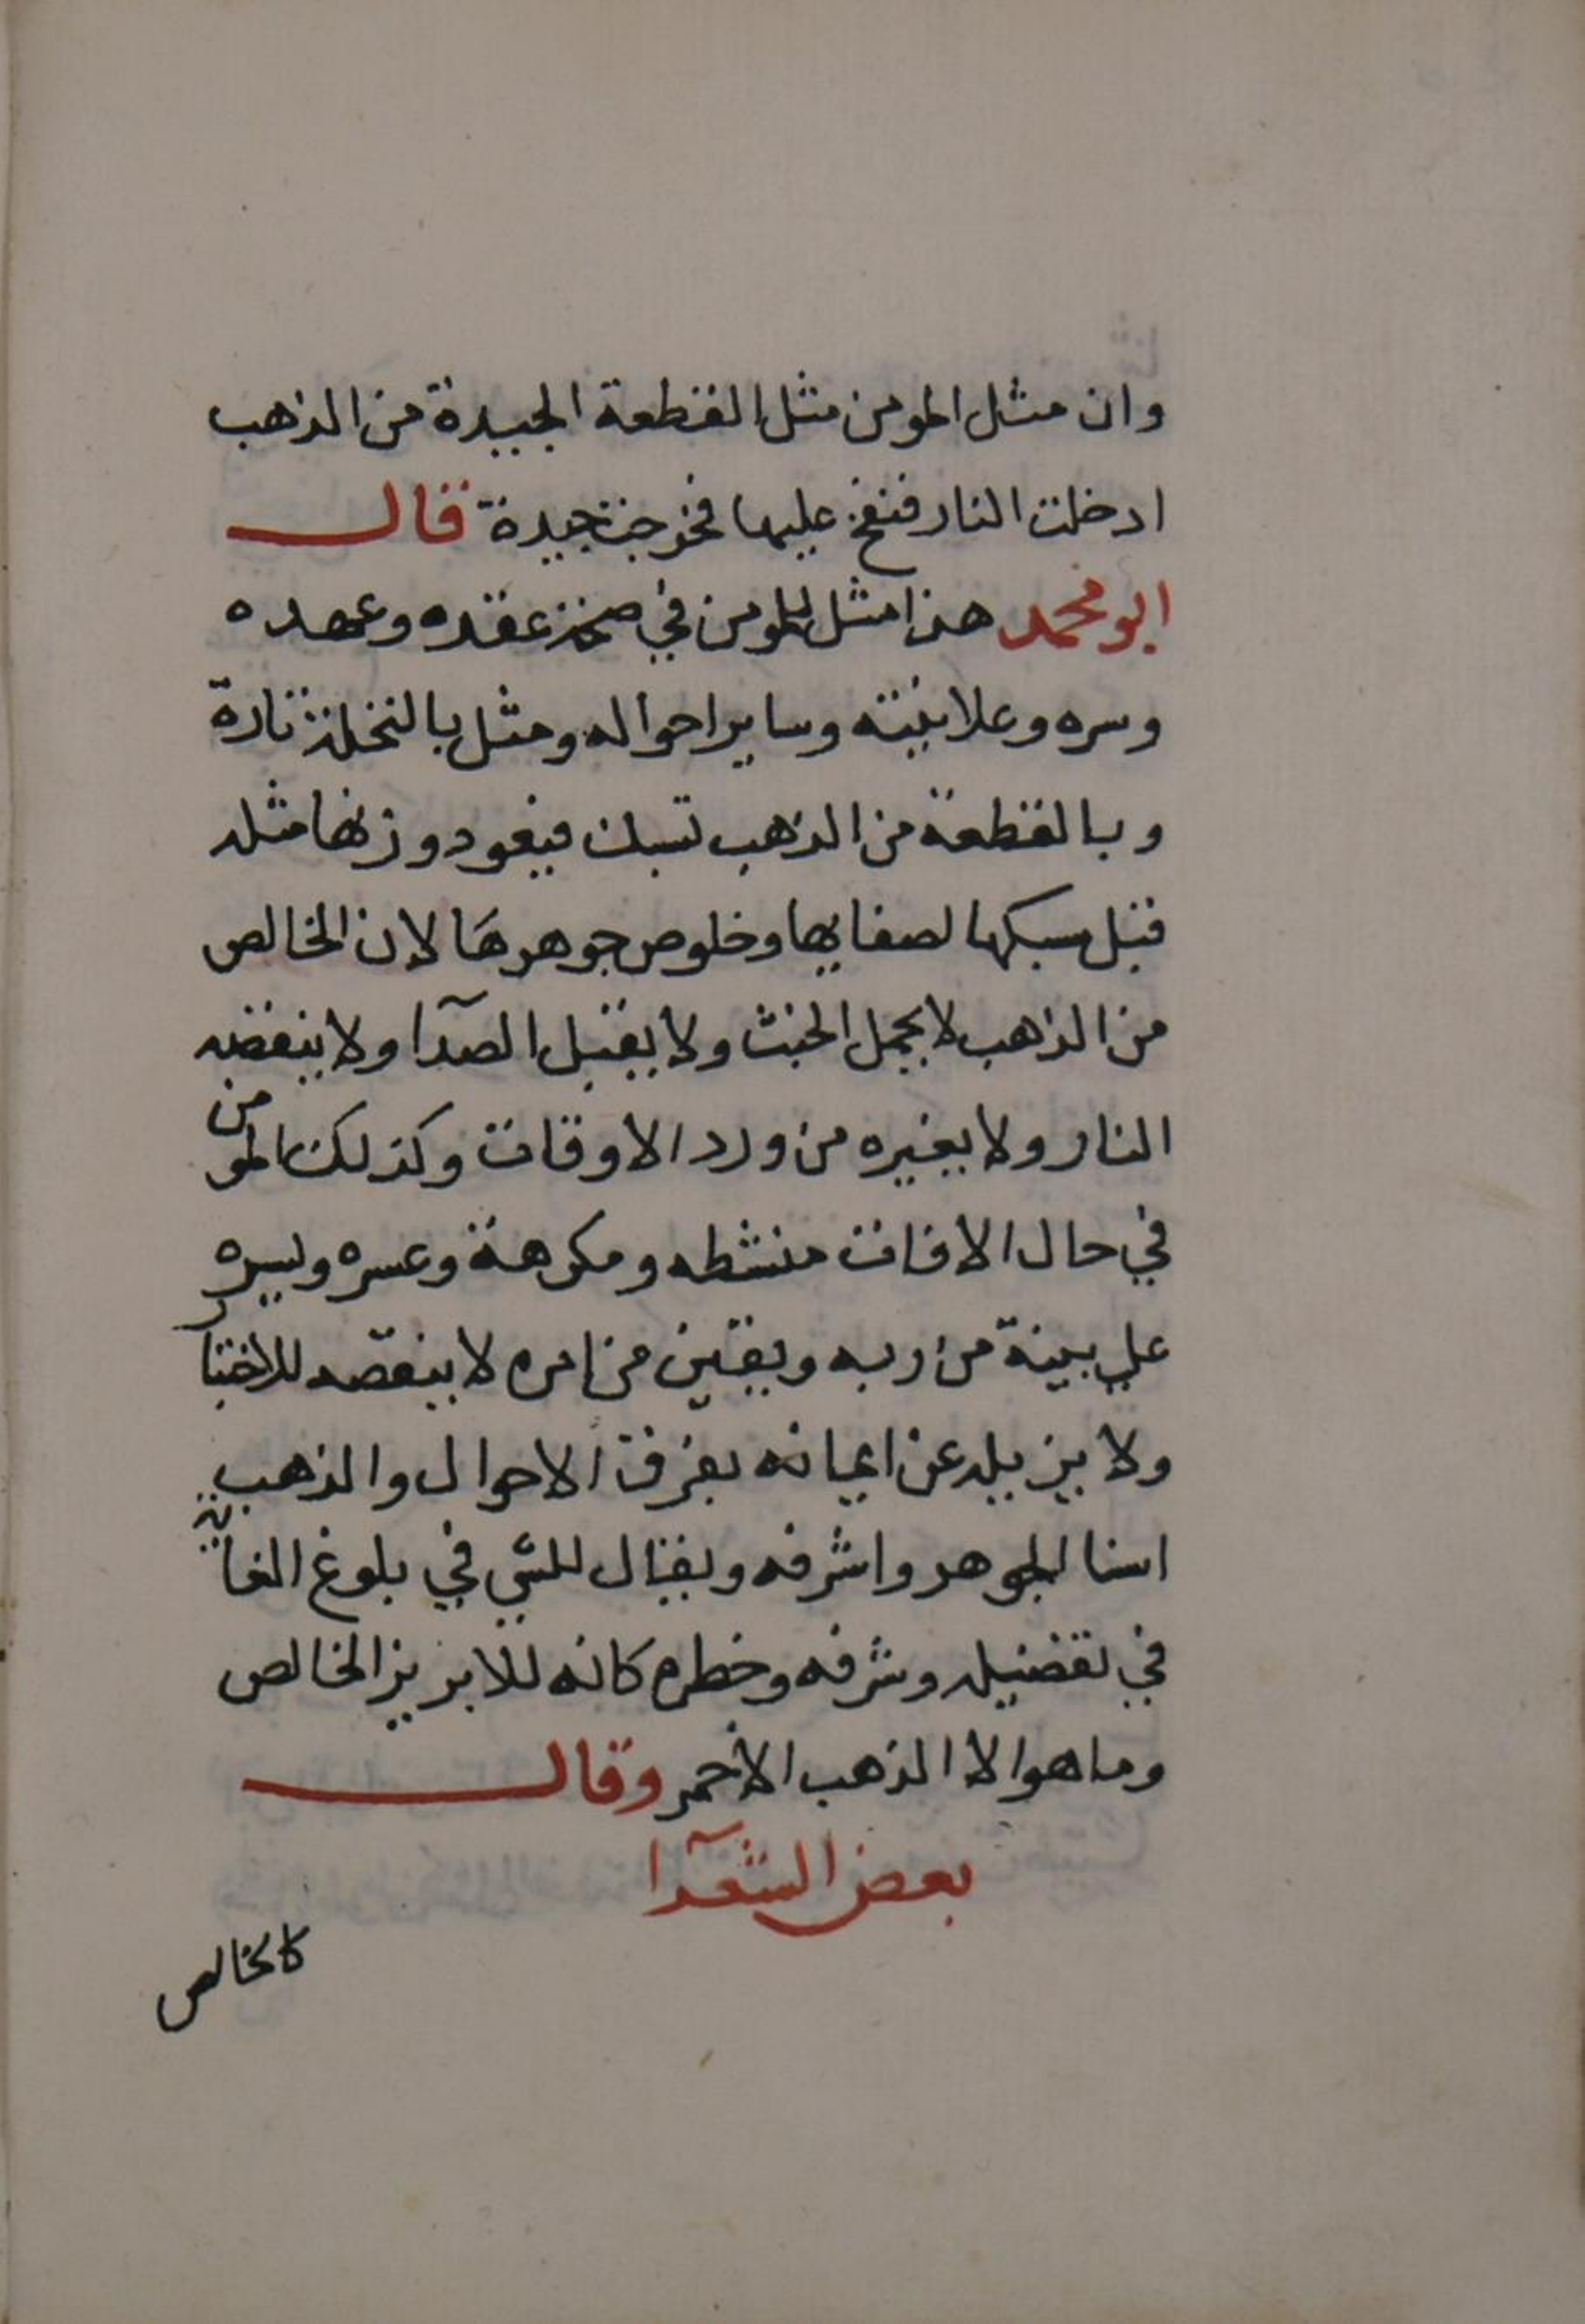 وان مثل المومن مثل القطعة الجيدة من الذهب
ادخلت النار فنفخ عليها فخرجت جيدة قال
ابو محمد هذا مثل للمومن في صحة عقده وعهده
وسره وعلانيته وساير احواله ومثل بالنخلة تارة
وبالقطعة من الذهب تسبك فيعود وزنها مثله
قبل سبكها لصفايها وخلوص جوهرها لان الخالص
من الذهب لا يحمل الخبث ولا يقبل الصدآ ولا ينقصه
النار ولا يغيره من ورد الاوقات وكذلك المومن
في حال الافات منشطه ومكرهة وعسره ويسره
علي بينة من ربه ويقين من امره لا ينقصه للاختبار
ولا يزيله عن ايمانه بفرقة الاحوال والذهب
اسنا الجوهر واشرفه ويقال للشي في بلوغ الغاية
في تفضيله وشرفه وخطره كانه للابريز الخالص
وما هوالا الذهب الاحمر وقال
بعض الشعرآ
كالخالص